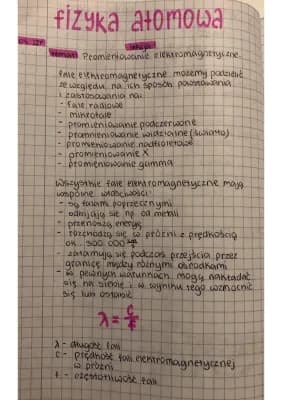 fizyka atomowa
lekcja
temat: Promieniowanie elektromagnetyczne.
fale elektromagnetyczne możemy podzielić
ze względu na ich sposób powstawania
i zastosowania na:
- fale radiowe
- mikrofale
- promieniowanie podczerwone
- promieniowanie widzialne (światło)
- promieniowanie nadfioletowe
- promieniowanie X
- promieniowanie gamma
Wszystkie fale elektromagnetyczne mają
wspólne właściwości:
- są falami poprzecznymi
- odbijają się np. od metali
- przenoszą energię
- rozchodzą się w próżni z prędkością
ok. 300 000
- załamują się podczas przejścia przez
granicę między różnymi ośrodkami
- w pewnych warunkach mogą nakładać
się na siebie i w wyniku tego wzmocnić
się lub osłabić
λ = c/f
λ - długość fali
c - prędkość fali elektromagnetycznej
w próżni
f - częstotliwość fali